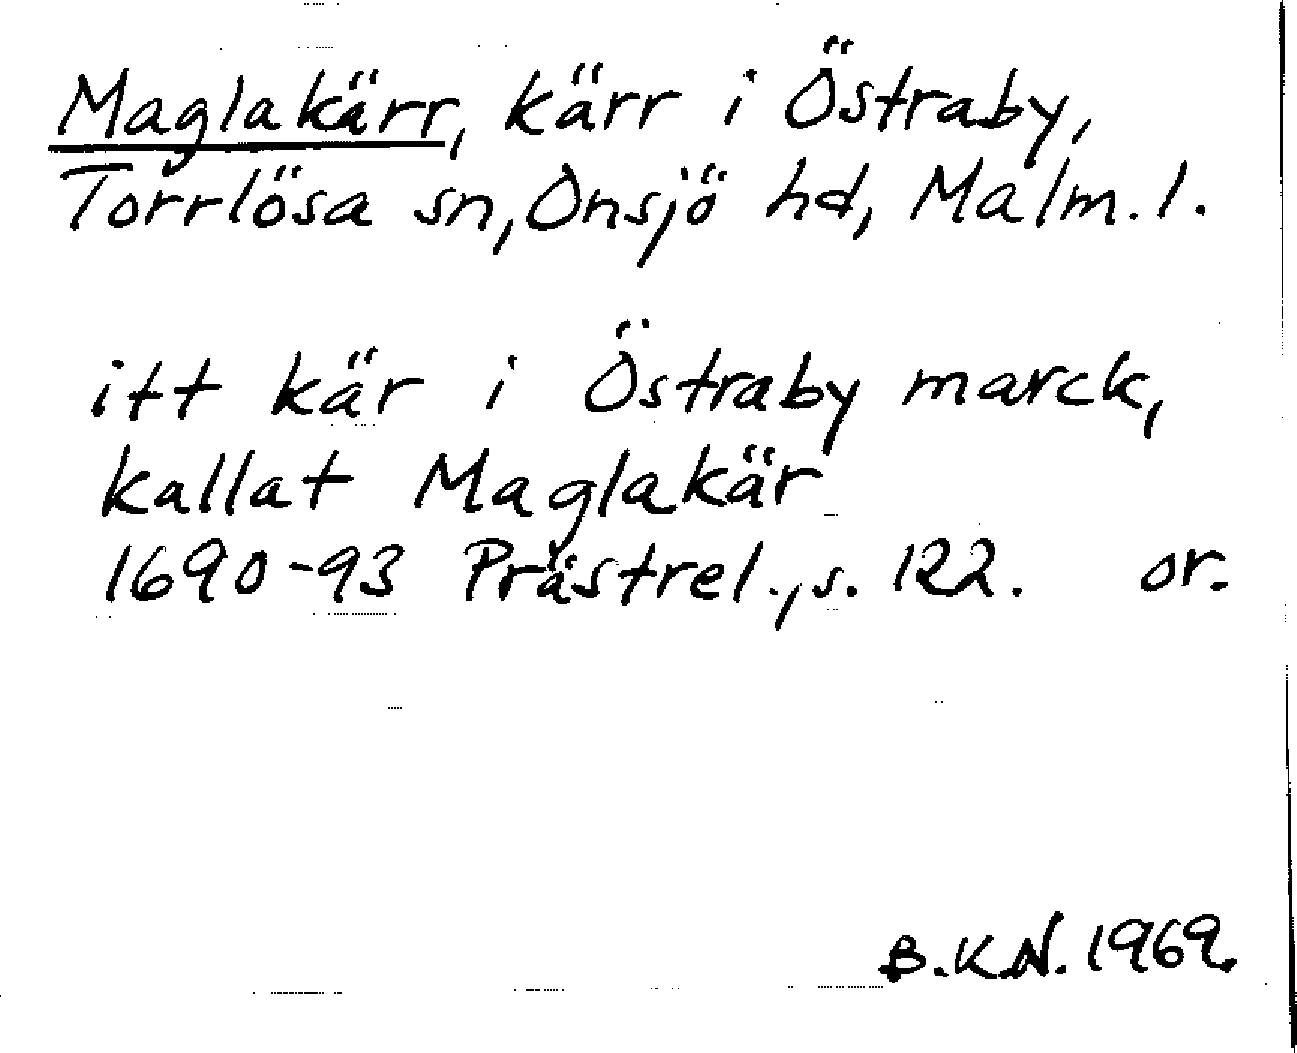 Maglakärr, kärr i Östraby,
Torrlösa sn, Onsjö hd, Malm. l.
itt kär i Östraby marck,
kallat Maglakär
1690-93 Prästrel., s. 122. or.
B.K.N. 1969.